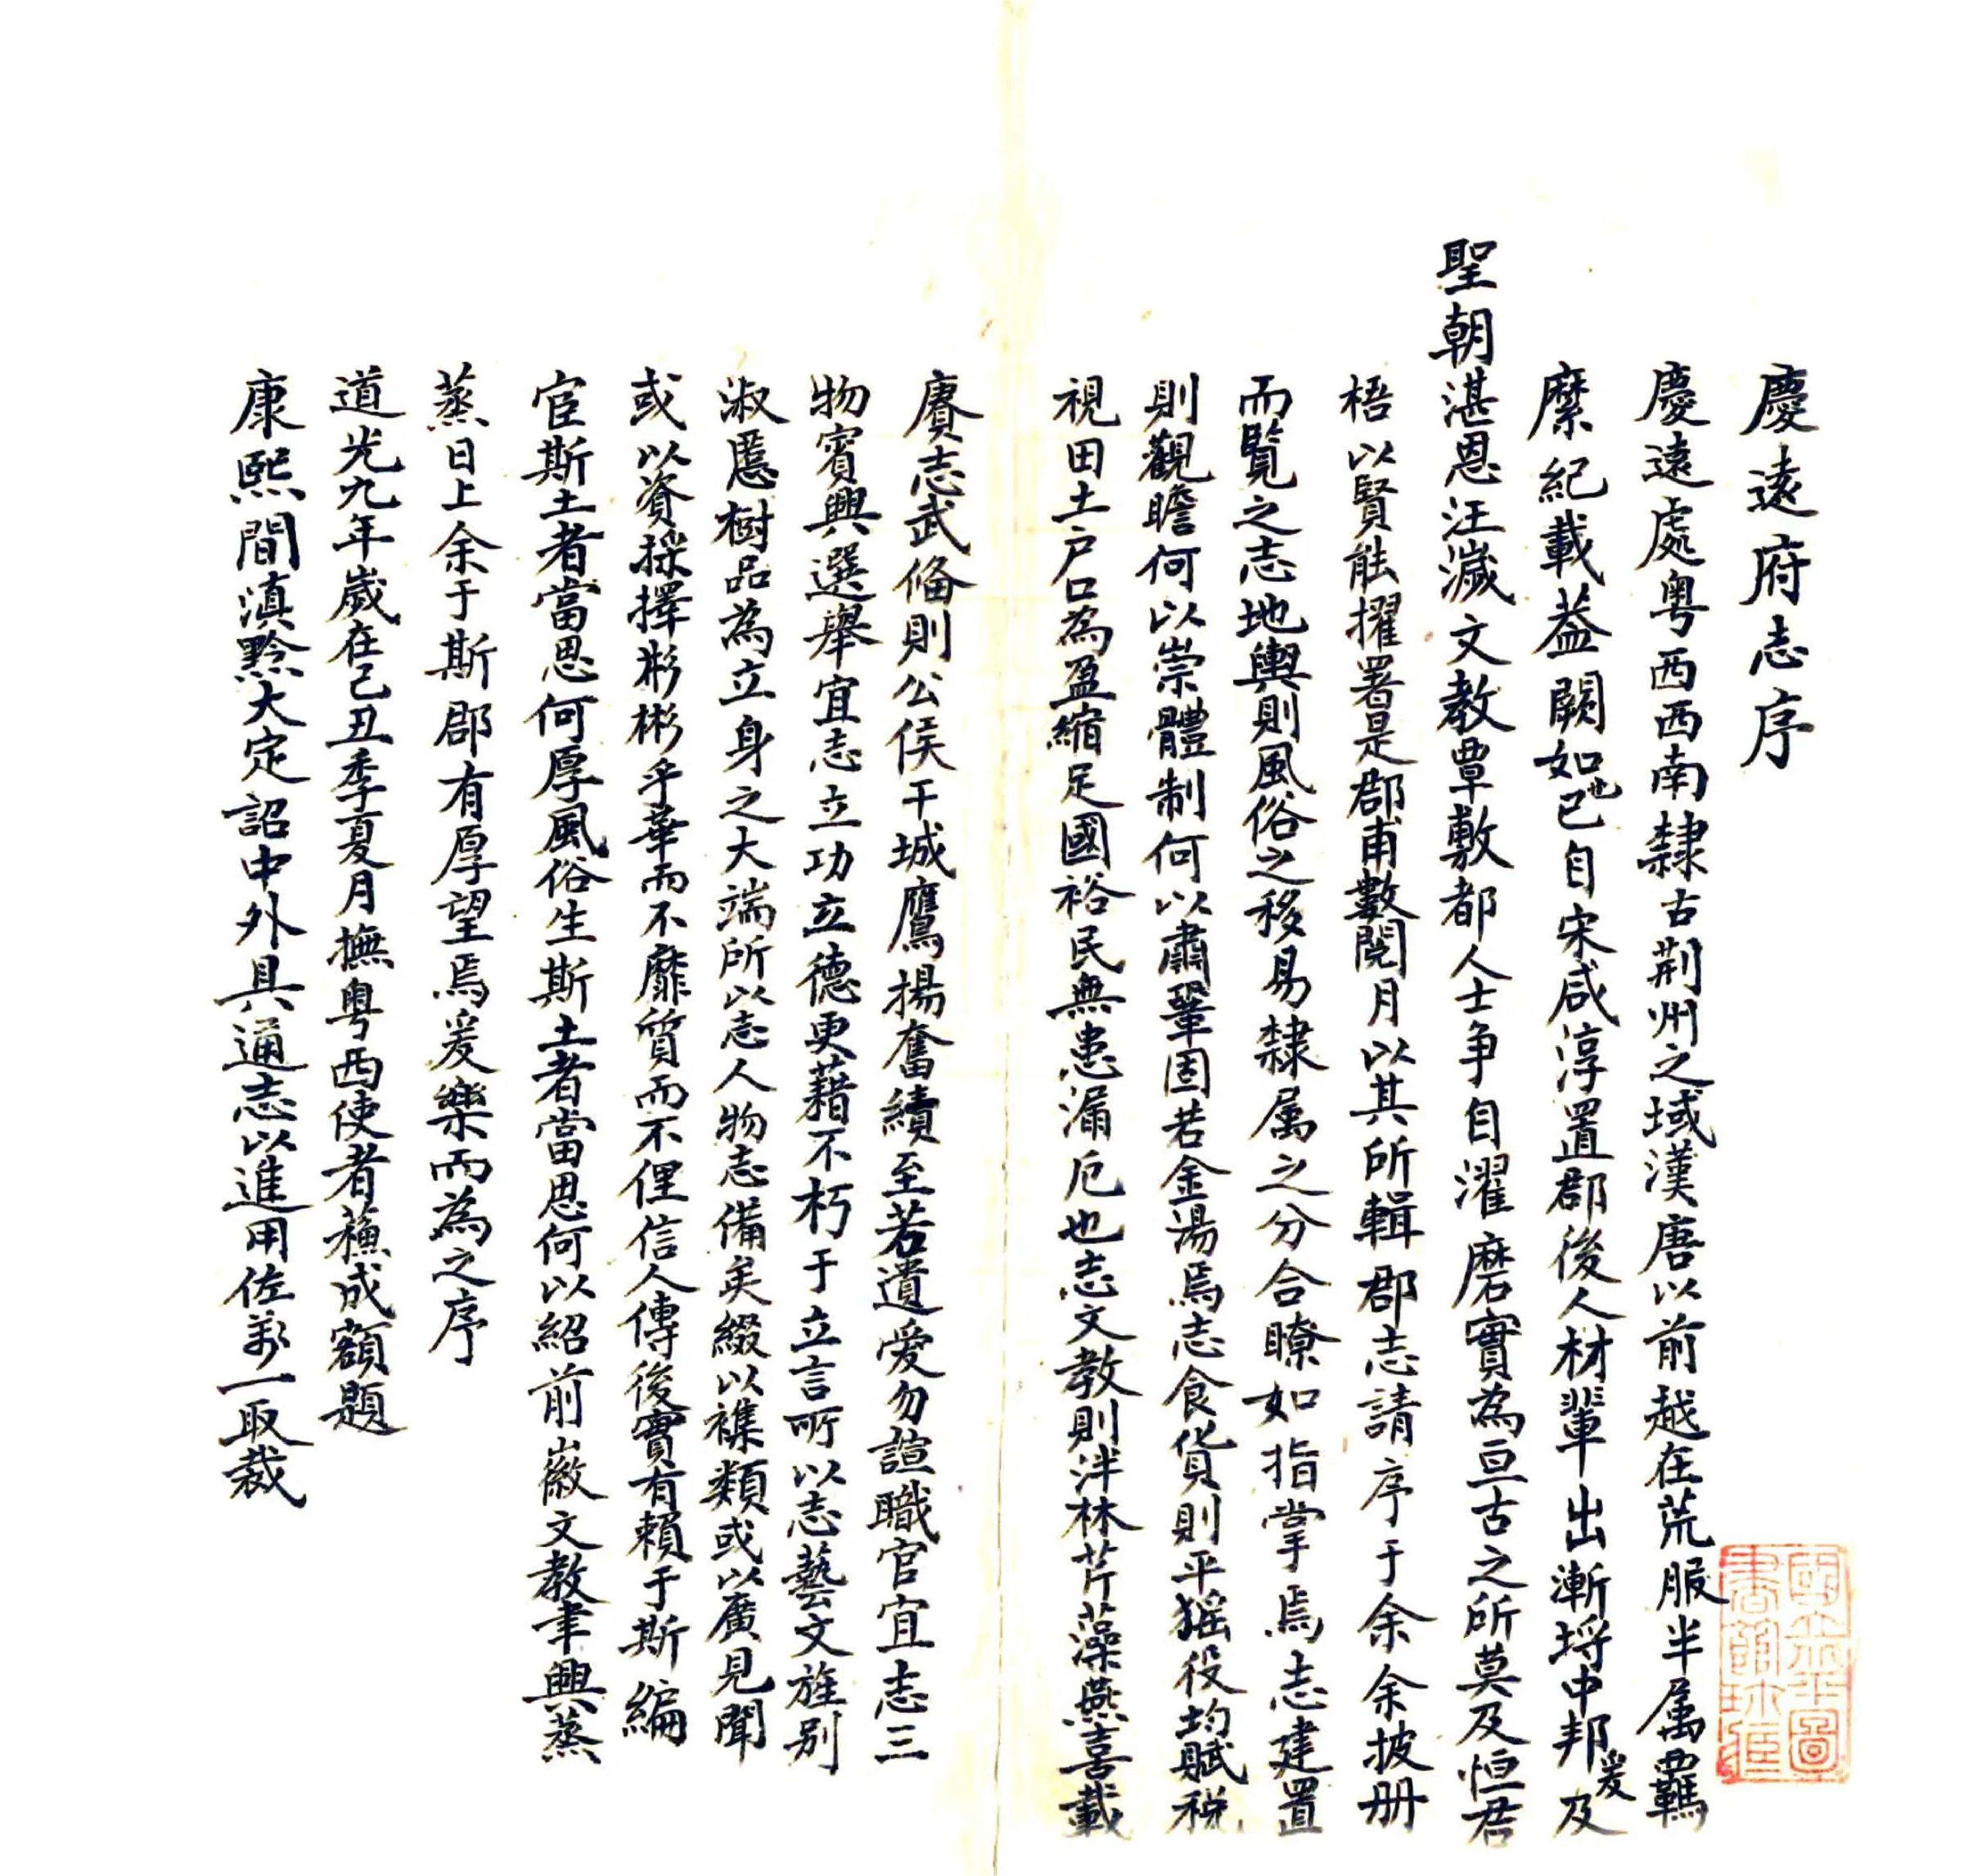 慶遠府志序
慶遠處粤西西南隸古荆州之域漢唐以前越在荒服半属羈
縻紀載葢闕如也已自宋咸淳置郡後人材輩出漸埒中邦爰及
聖朝湛恩汪濊文教覃敷都人士争自濯磨實為亘古之所莫及恒君
梧以賢能擢署是郡甫數閱月以其所輯郡志請序于余余披册
而覧之志地輿則風俗之移易隸属之分合瞭如指掌焉志建置
則觀瞻何以崇體制何以肅鞏固若金湯焉志食貨則平猺役均賦税
視田土户口為盈縮足國裕民無患漏卮也志文教則泮林芹藻燕喜載
賡志武俻則公侯干城鷹揚奮績至若遺愛勿諠職官宜志三
物賓興選舉宜志立功立德更藉不朽于立言所以志藝文旌别
淑慝樹品為立身之大端所以志人物志備矣綴以襍類或以廣見聞
或以資採擇彬彬乎華而不靡質而不俚信人傳後實有賴于斯編
宦斯土者當思何厚風俗生斯土者當思何以紹前徽文教聿興蒸
蒸日上余于斯郡有厚望焉爰樂而為之序
道光九年歲在己丑季夏月撫粤西使者蘓成額題
康熙間滇黔大定詔中外具通志以進用佐萬一取裁
國立北平圖
書館珍藏